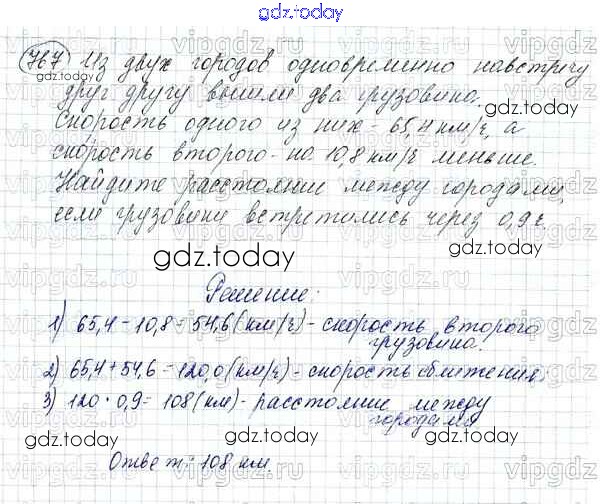 gdz.today
767 Из двух городов одновременно навстречу
друг другу вышли два грузовика.
Скорость одного из них - 65,4 км/ч, а
скорость второго - на 10,8 км/ч меньше.
Найдите расстояние между городами,
если грузовики встретились через 0,9 ч.
Решение:
1) 65,4 - 10,8 = 54,6 (км/ч) - скорость второго
грузовика.
2) 65,4 + 54,6 = 120,0 (км/ч) - скорость сближения.
3) 120 · 0,9 = 108 (км) - расстояние между
городами
Ответ: 108 км.
gdz.today
gdz.today
gdz.today
gdz.today
gdz.today
gdz.today
gdz.today
gdz.today
gdz.today